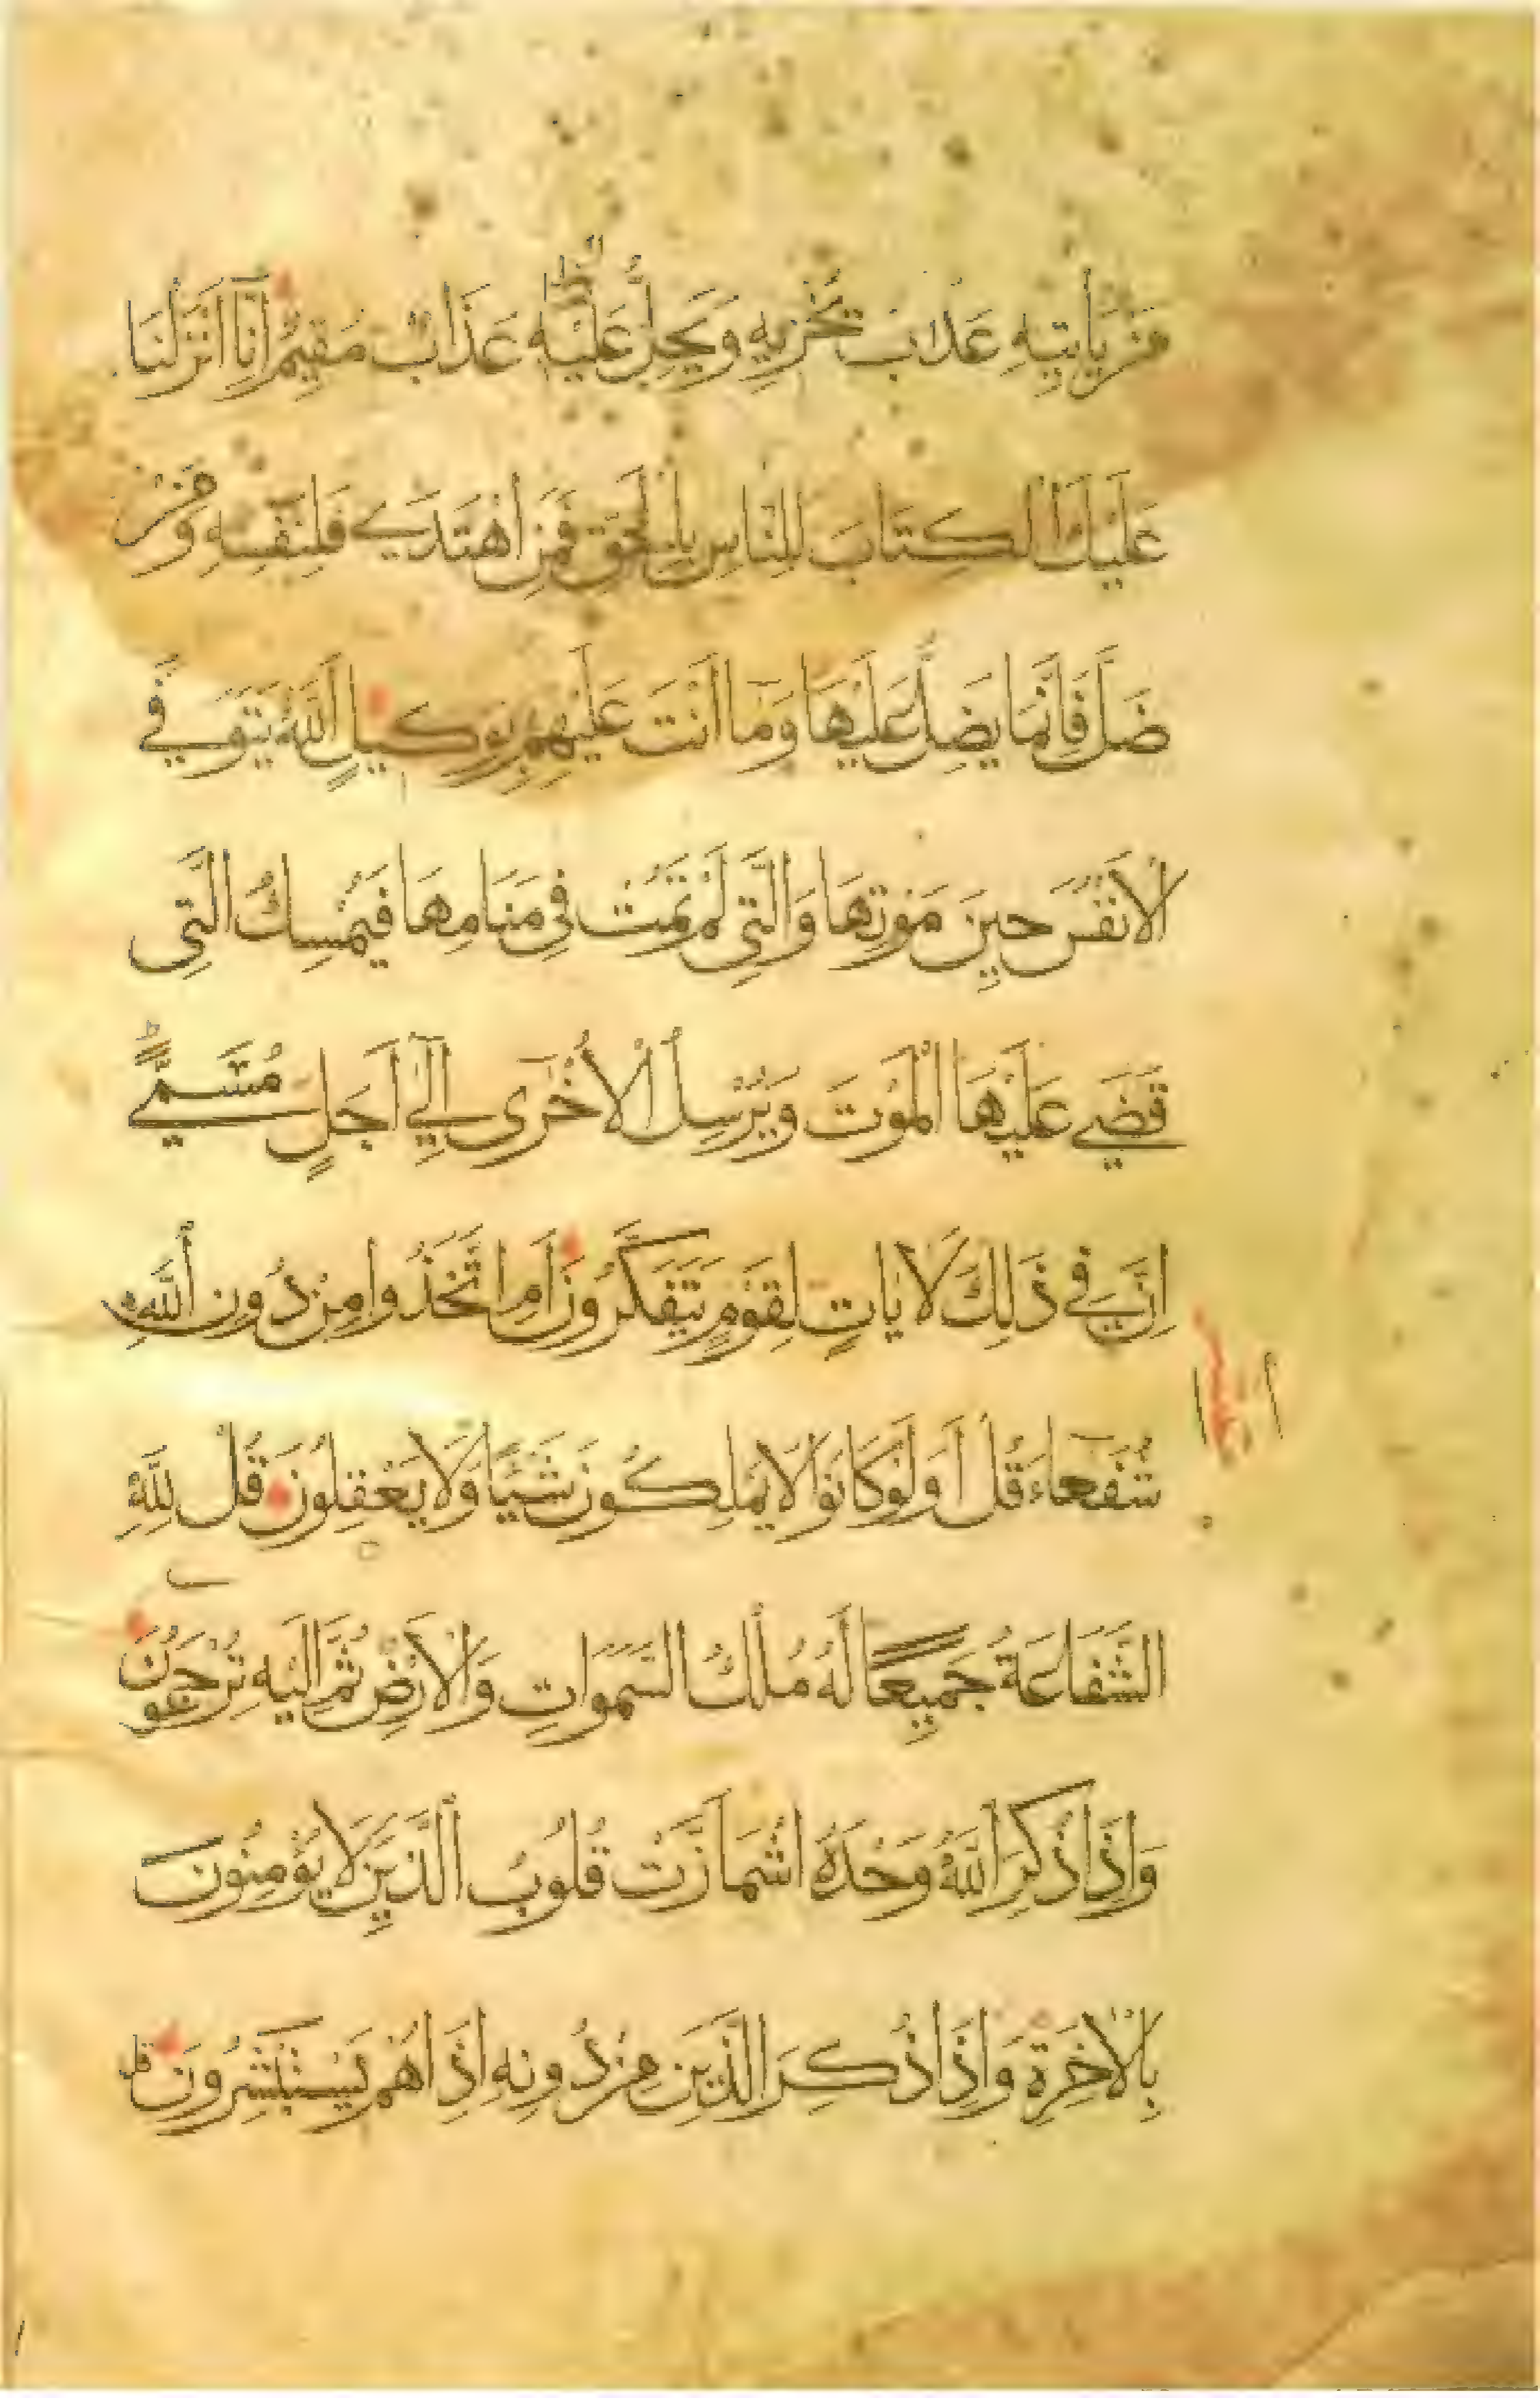 مَنْ يَأْتِيهِ عَذَابٌ يُخْزِيهِ وَيَحِلُّ عَلَيْهِ عَذَابٌ مُقِيمٌ اِنَّا اَنْزَلْنَا
عَلَيْكَ الْكِتَابَ لِلنَّاسِ بِالْحَقِّ فَمَنِ اهْتَدَى فَلِنَفْسِهِ وَمَنْ
ضَلَّ فَاِنَّمَا يَضِلُّ عَلَيْهَا وَمَا اَنْتَ عَلَيْهِمْ بِوَكِيلٍ اَللّٰهُ يَتَوَفَّى
الْاَنْفُسَ حِينَ مَوْتِهَا وَالَّتِي لَمْ تَمُتْ فِي مَنَامِهَا فَيُمْسِكُ الَّتِي
قَضَى عَلَيْهَا الْمَوْتَ وَيُرْسِلُ الْاُخْرَى اِلَى اَجَلٍ مُسَمًّى
اِنَّ فِي ذَلِكَ لَاٰيَاتٍ لِقَوْمٍ يَتَفَكَّرُونَ اَمِ اتَّخَذُوا مِنْ دُونِ اللّٰهِ
شُفَعَاءَ قُلْ اَوَلَوْ كَانُوا لَا يَمْلِكُونَ شَيْئًا وَلَا يَعْقِلُونَ قُلْ لِلّٰهِ
الشَّفَاعَةُ جَمِيعًا لَهُ مُلْكُ السَّمَوَاتِ وَالْاَرْضِ ثُمَّ اِلَيْهِ تُرْجَعُونَ
وَاِذَا ذُكِرَ اللّٰهُ وَحْدَهُ اشْمَاَزَّتْ قُلُوبُ الَّذِينَ لَا يُؤْمِنُونَ
بِالْاٰخِرَةِ وَاِذَا ذُكِرَ الَّذِينَ مِنْ دُونِهِ اِذَا هُمْ يَسْتَبْشِرُونَ قل